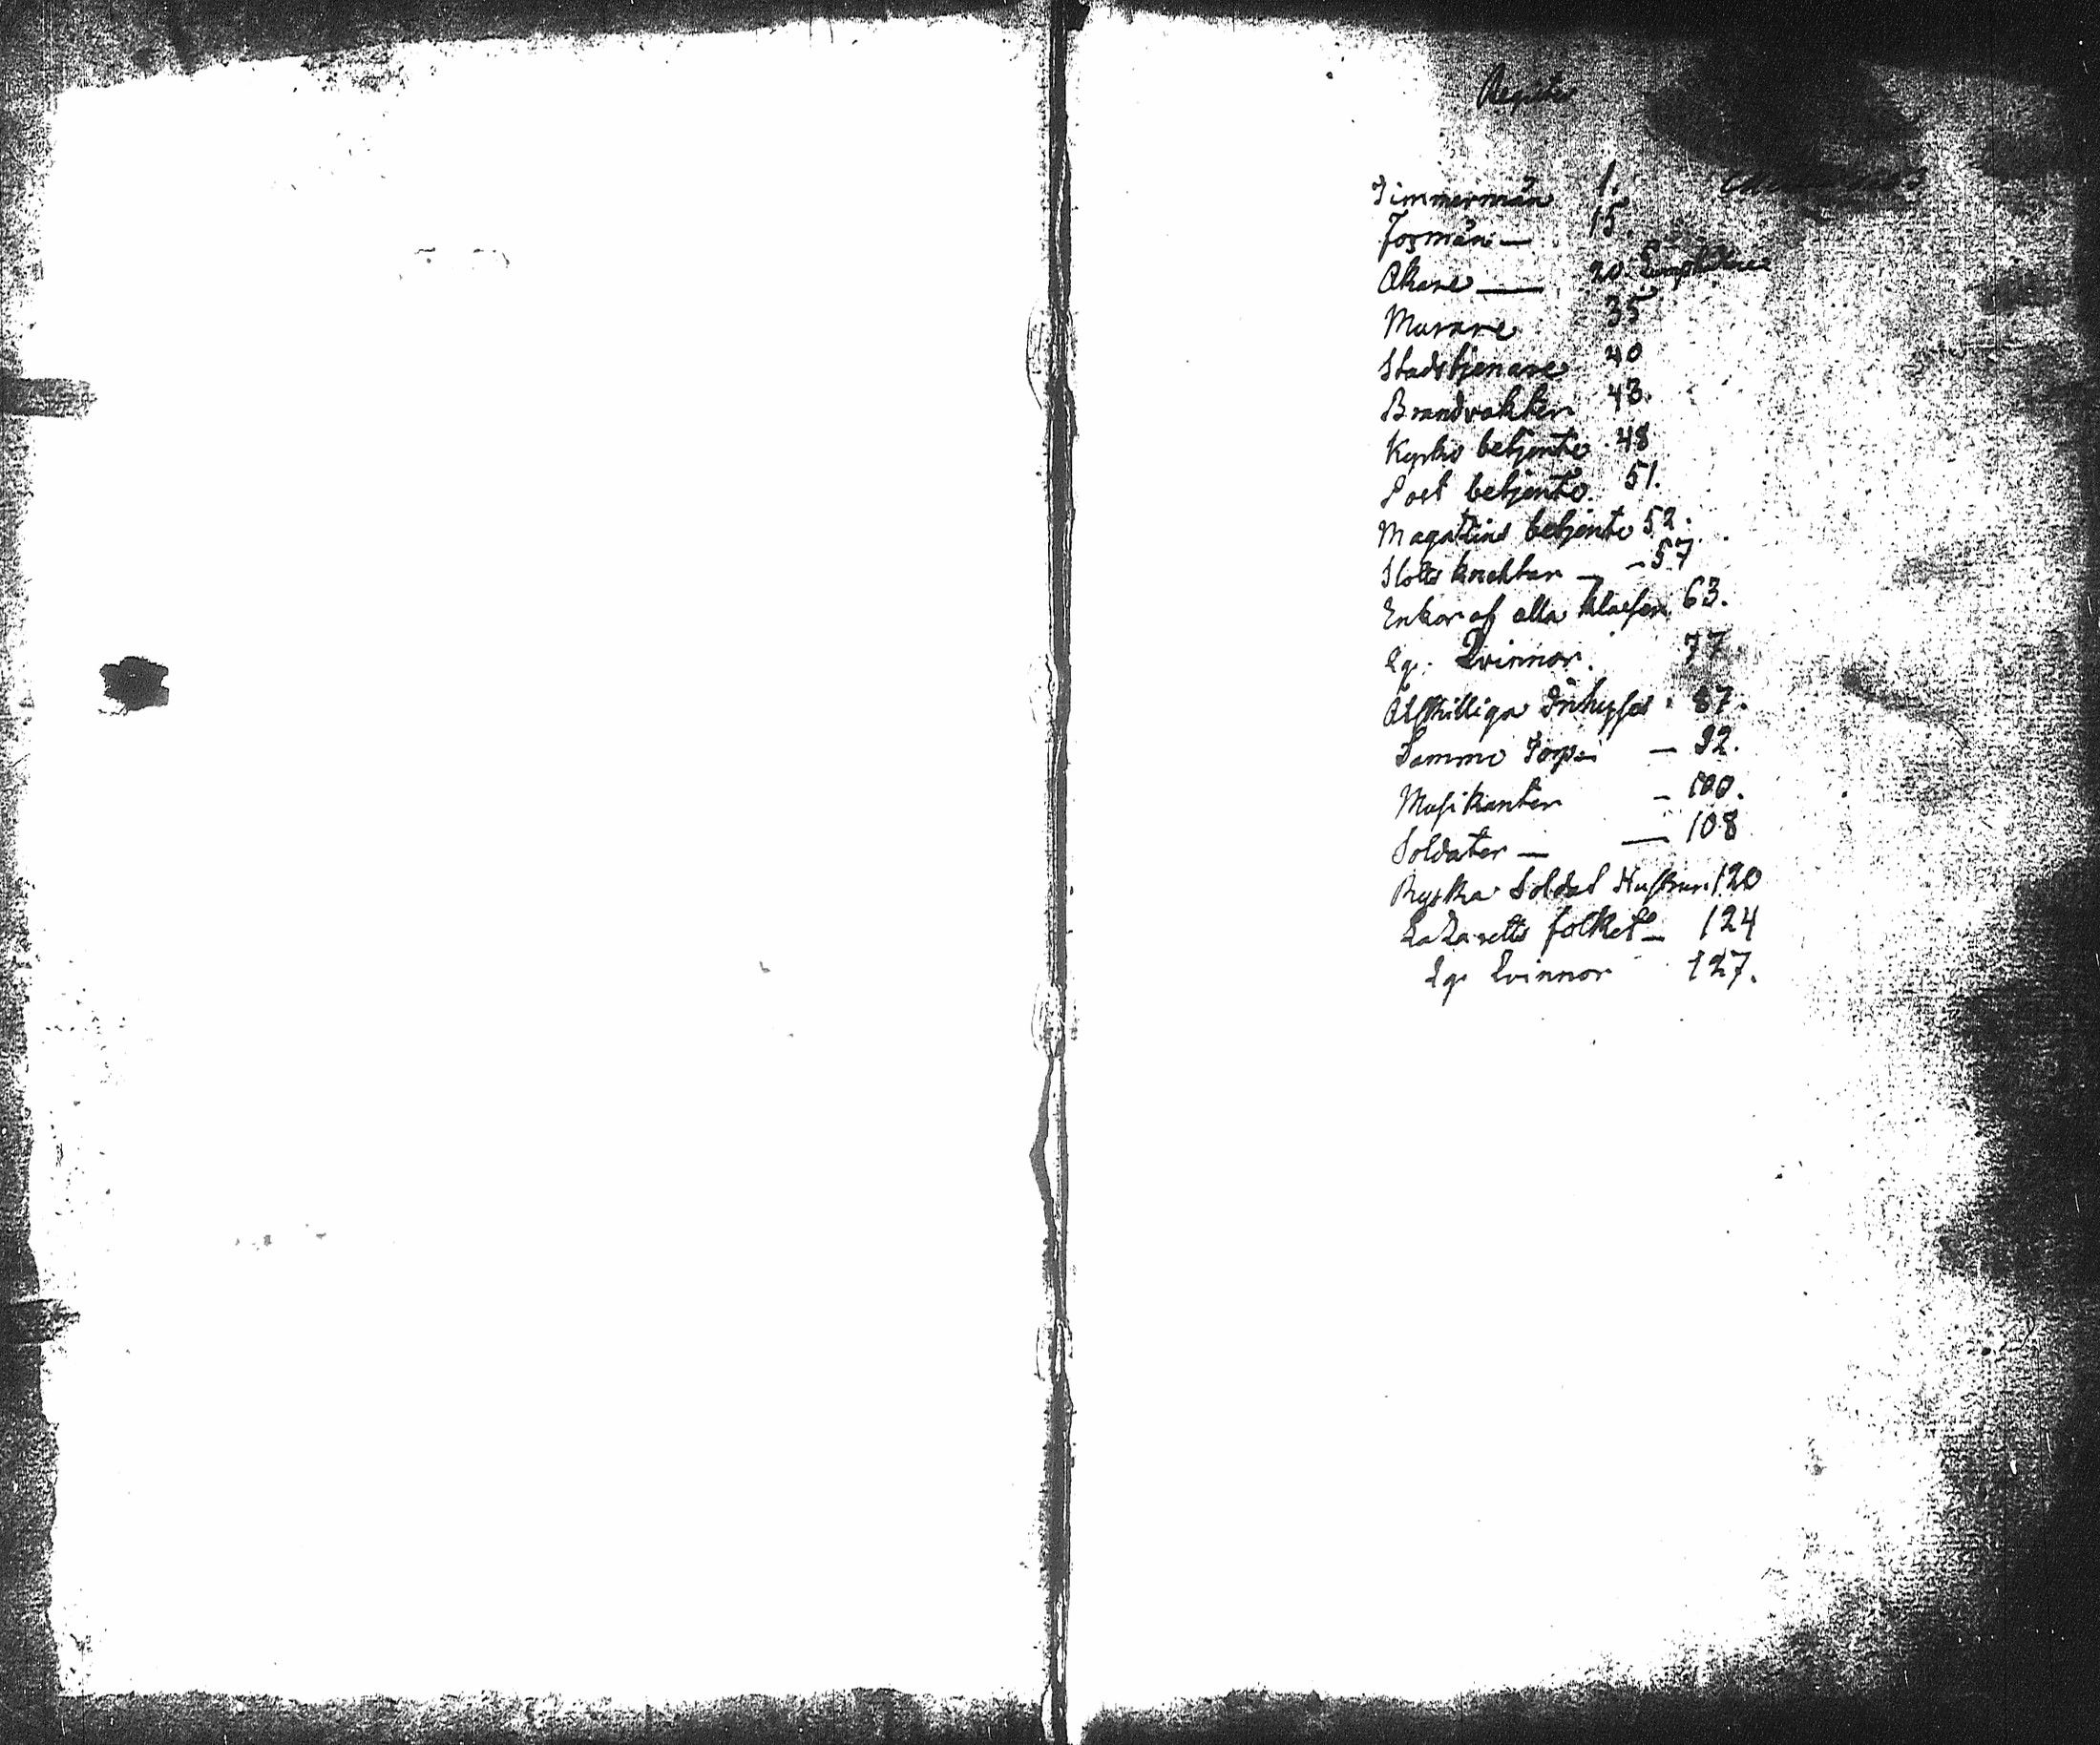 Register
Timmermän 1.
Formän — 15.
Åkare — 20.
Murare 35
Stadstjenare 40
Brandvakter 43.
Kyrko betjente 48
Post betjente 51.
Magatzins betjente 52.
Slotts knektar — 57
Enkor af alla klasser 63.
Lq. Qvinnor. 77
Åtskilliga Inhyses 87.
Samme Torp 92.
Musikanter — 100.
Soldater — — 108
Ryska Soldat Hustrur 120
Lazaretts folket — 124
Lq. Qvinnor 127.